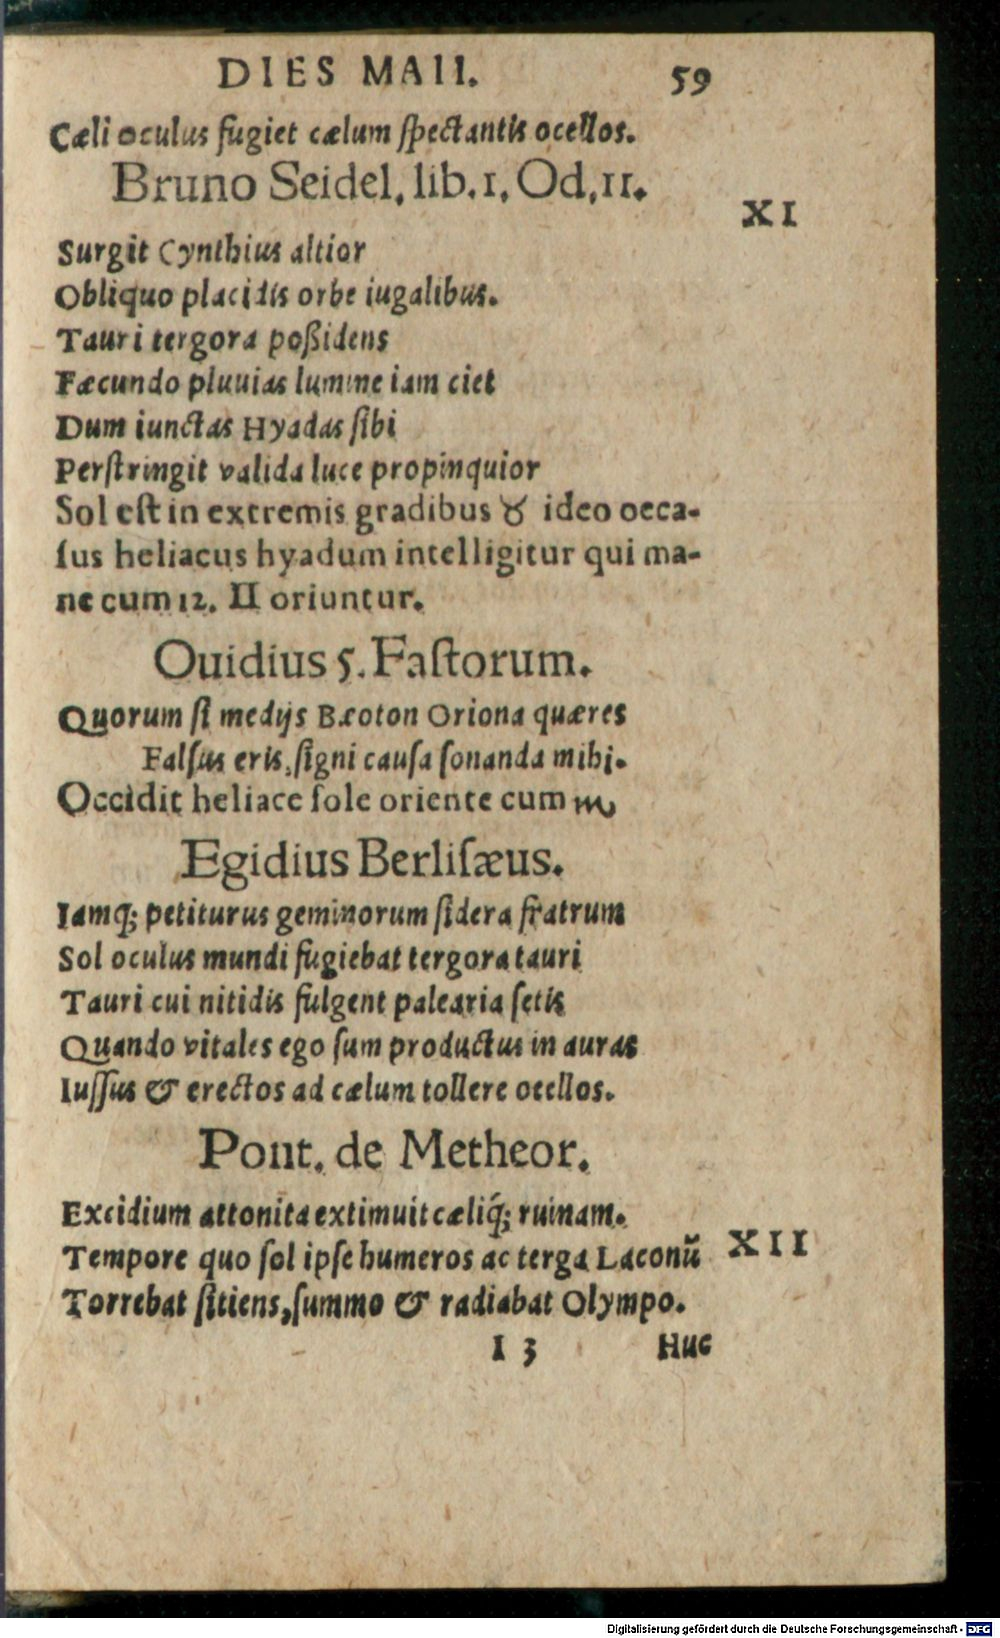 DIES MAII. 59
Cæli oculus fugiet cælum ſpectantis ocellos.
Bruno Seidel. lib. 1. Od. 11.
XI
Surgit Cynthius altior
Obliquo placidis orbe iugalibus.
Tauri tergora poßidens
Fæcundo pluuias lumine iam ciet
Dum iunctas Hyadas ſibi
Perſtringit valida luce propinquior
Sol eſt in extremis gradibus ♉ ideo occa-
ſus heliacus hyadum intelligitur qui ma-
ne cum 12. II oriuntur.
Ouidius 5. Faſtorum.
Quorum ſi medijs Bæoton Oriona quæres
Falſus eris, ſigni cauſa ſonanda mihi.
Occidit heliace ſole oriente cum ♏
Egidius Berliſæus.
Iamq; petiturus geminorum ſidera fratrum
Sol oculus mundi fugiebat tergora tauri
Tauri cui nitidis fulgent palearia ſetis
Quando vitales ego ſum productus in auras
Iuſſus & erectos ad cælum tollere ocellos.
Pont. de Metheor.
Excidium attonita extimuit cæliq́; ruinam.
XII
Tempore quo ſol ipſe humeros ac terga Laconũ
Torrebat ſitiens, ſummo & radiabat Olympo.
I 3 Huc
Digitalisierung gefördert durch die Deutsche Forschungsgemeinschaft - DFG